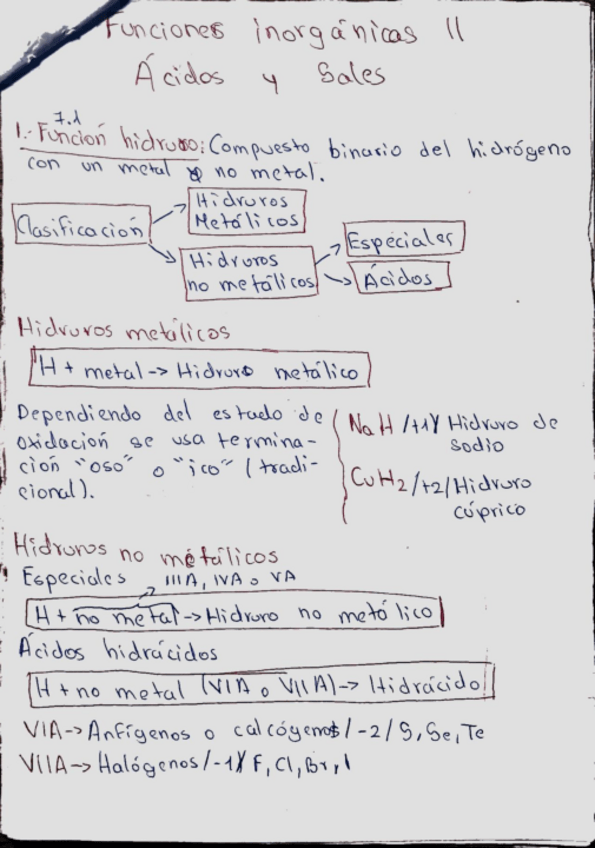 Funciones inorgánicas II
Ácidos y Sales
7.1
1.- Función hidruro: Compuesto binario del hidrógeno
con un metal o no metal.
Clasificación
Hidruros
Metálicos
Hidruros
no metálicos
Especiales
Ácidos
Hidruros metálicos
H + metal -> Hidruro metálico
Dependiendo del estado de
oxidación se usa termina-
ción "oso" o "ico" (tradi-
cional).
NaH /+1/ Hidruro de
sodio
CuH2 /+2/ Hidruro
cúprico
Hidruros no metálicos
Especiales
IIIA, IVA o VA
H + no metal -> Hidruro no metálico
Ácidos hidrácidos
H + no metal (VIA o VIIA) -> Hidrácido
VIA -> Anfígenos o calcógenos / -2 / S, Se, Te
VIIA -> Halógenos / -1 / F, Cl, Br, I